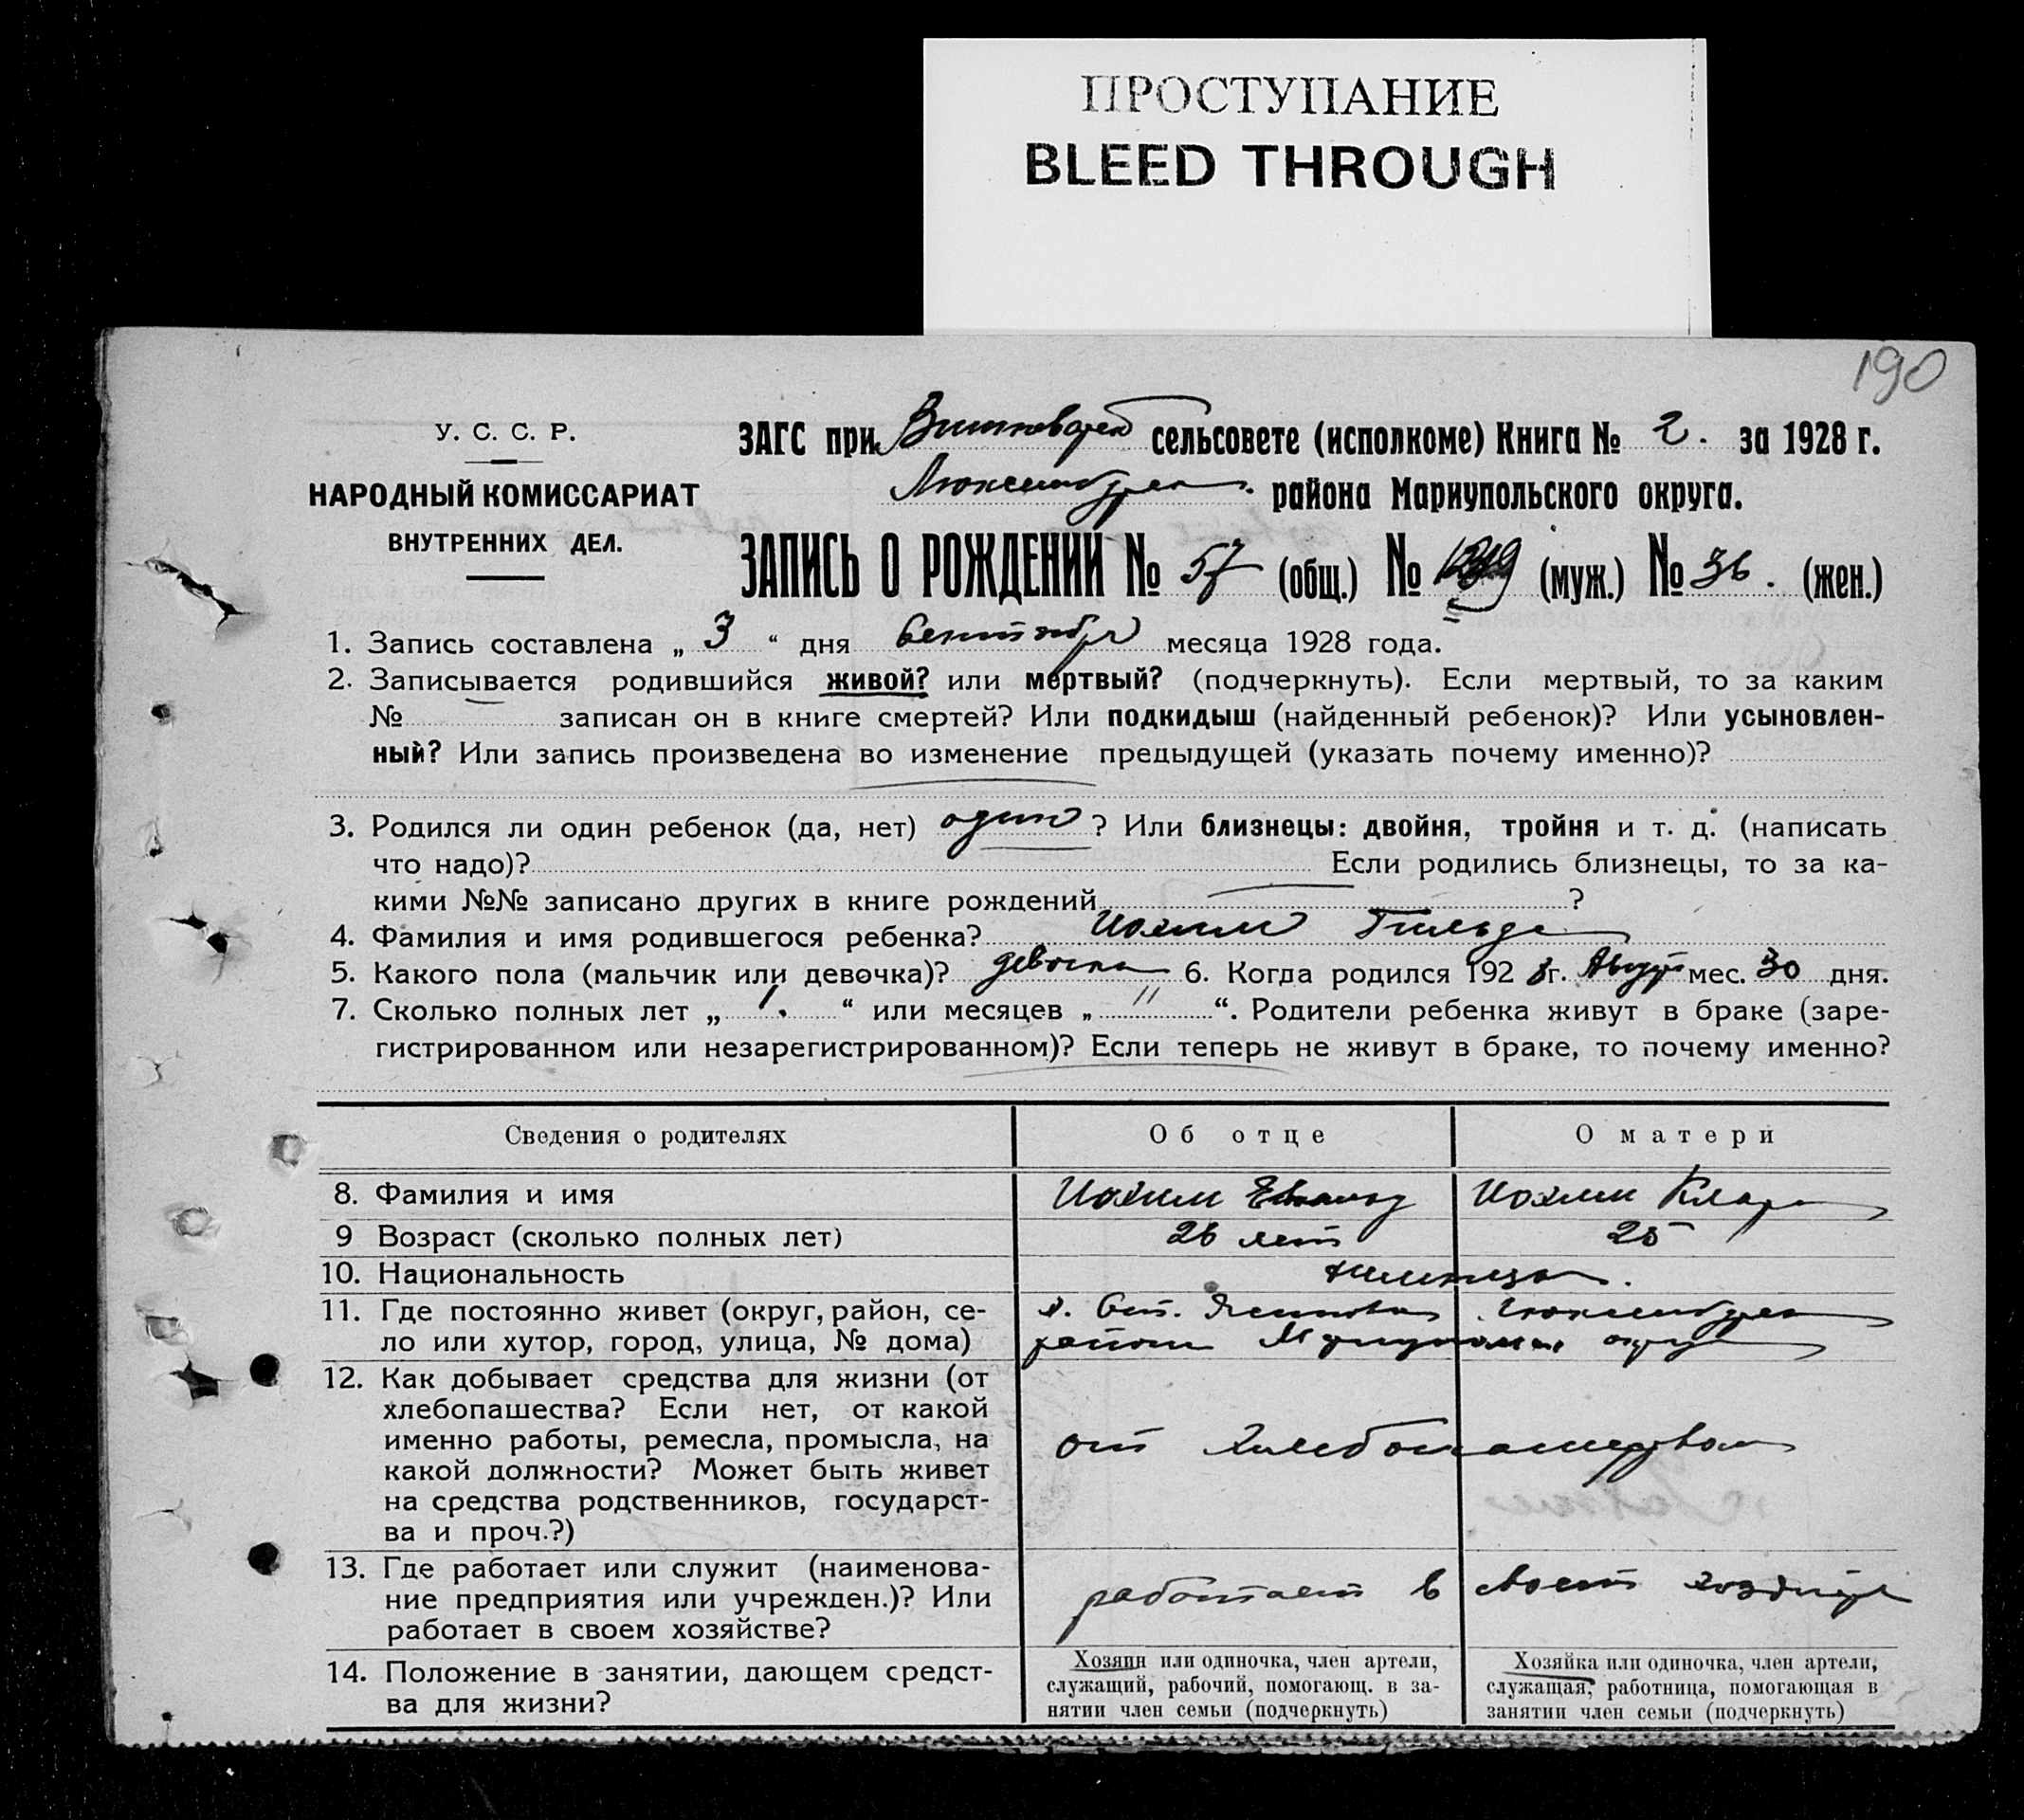 ПРОСТУПАНИЕ
BLEED THROUGH
190
У. С. С. Р.
НАРОДНЫЙ КОМИССАРИАТ
ВНУТРЕННИХ ДЕЛ.
ЗАГС при сельсовете (исполкоме) Книга № 2. за 1928 г.
Люксембург. района Мариупольского округа.
ЗАПИСЬ О РОЖДЕНИИ № 57 (общ.) № (муж.) № 36. (жен.)
1. Запись составлена „ 3 “ дня Сентября месяца 1928 года.
2. Записывается родившийся живой? или мертвый? (подчеркнуть). Если мертвый, то за каким
№ записан он в книге смертей? Или подкидыш (найденный ребенок)? Или усыновлен-
ный? Или запись произведена во изменение предыдущей (указать почему именно)?
3. Родился ли один ребенок (да, нет) один ? Или близнецы: двойня, тройня и т. д. (написать
что надо)? Если родились близнецы, то за ка-
кими №№ записано других в книге рождений ?
4. Фамилия и имя родившегося ребенка? Иохим Гильда
5. Какого пола (мальчик или девочка)? девочка 6. Когда родился 192 8 г. Август мес. 30 дня.
7. Сколько полных лет „ 1. “ или месяцев „ " “. Родители ребенка живут в браке (заре-
гистрированном или незарегистрированном)? Если теперь не живут в браке, то почему именно?
Сведения о родителях Об отце О матери
8. Фамилия и имя Иохим Евальд Иохим Клара
9 Возраст (сколько полных лет) 26 лет 25
10. Национальность немцы.
11. Где постоянно живет (округ, район, се-
ло или хутор, город, улица, № дома)
Люксембург
района Мариупольск округ
12. Как добывает средства для жизни (от
хлебопашества? Если нет, от какой
именно работы, ремесла, промысла, на
какой должности? Может быть живет
на средства родственников, государст-
ва и проч.?)
от хлебопашества
13. Где работает или служит (наименова-
ние предприятия или учрежден.)? Или
работает в своем хозяйстве?
работает в своем
14. Положение в занятии, дающем средст-
ва для жизни?
Хозяин или одиночка, член артели,
служащий, рабочий, помогающ. в за-
нятии член семьи (подчеркнуть)
Хозяйка или одиночка, член артели,
служащая, работница, помогающая в
занятии член семьи (подчеркнуть)